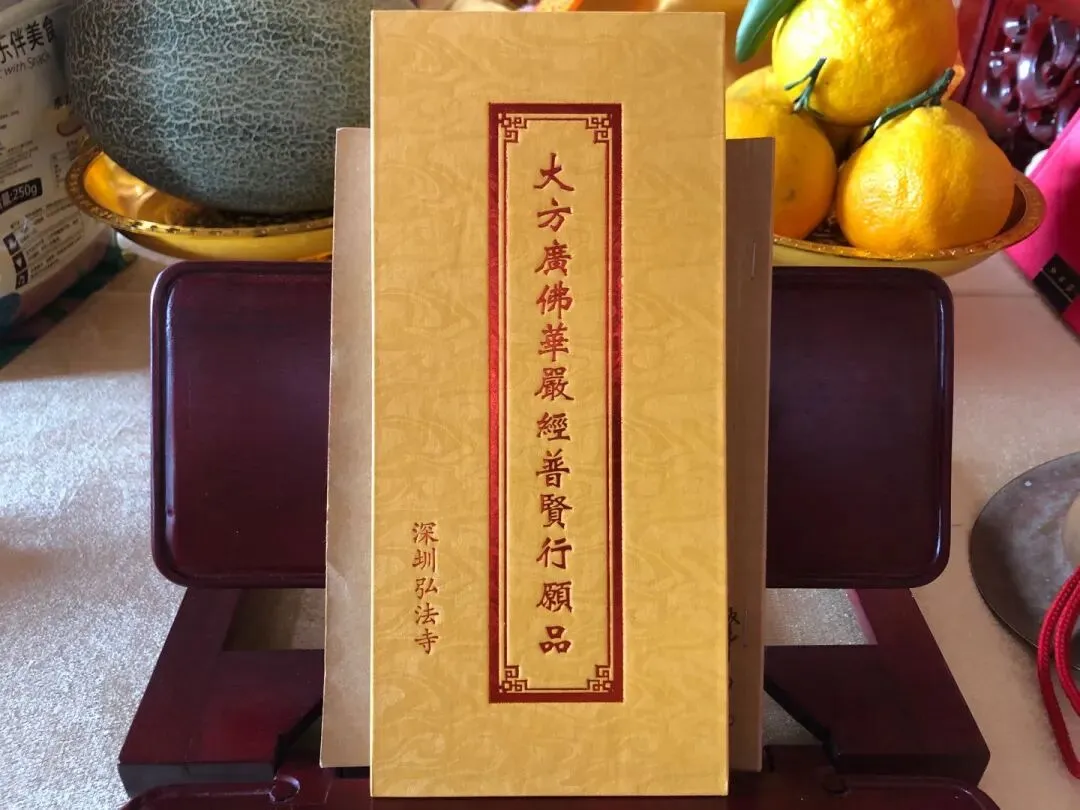 大方廣佛華嚴經普賢行願品
深圳弘法寺
乐伴美食
with Spac
250g